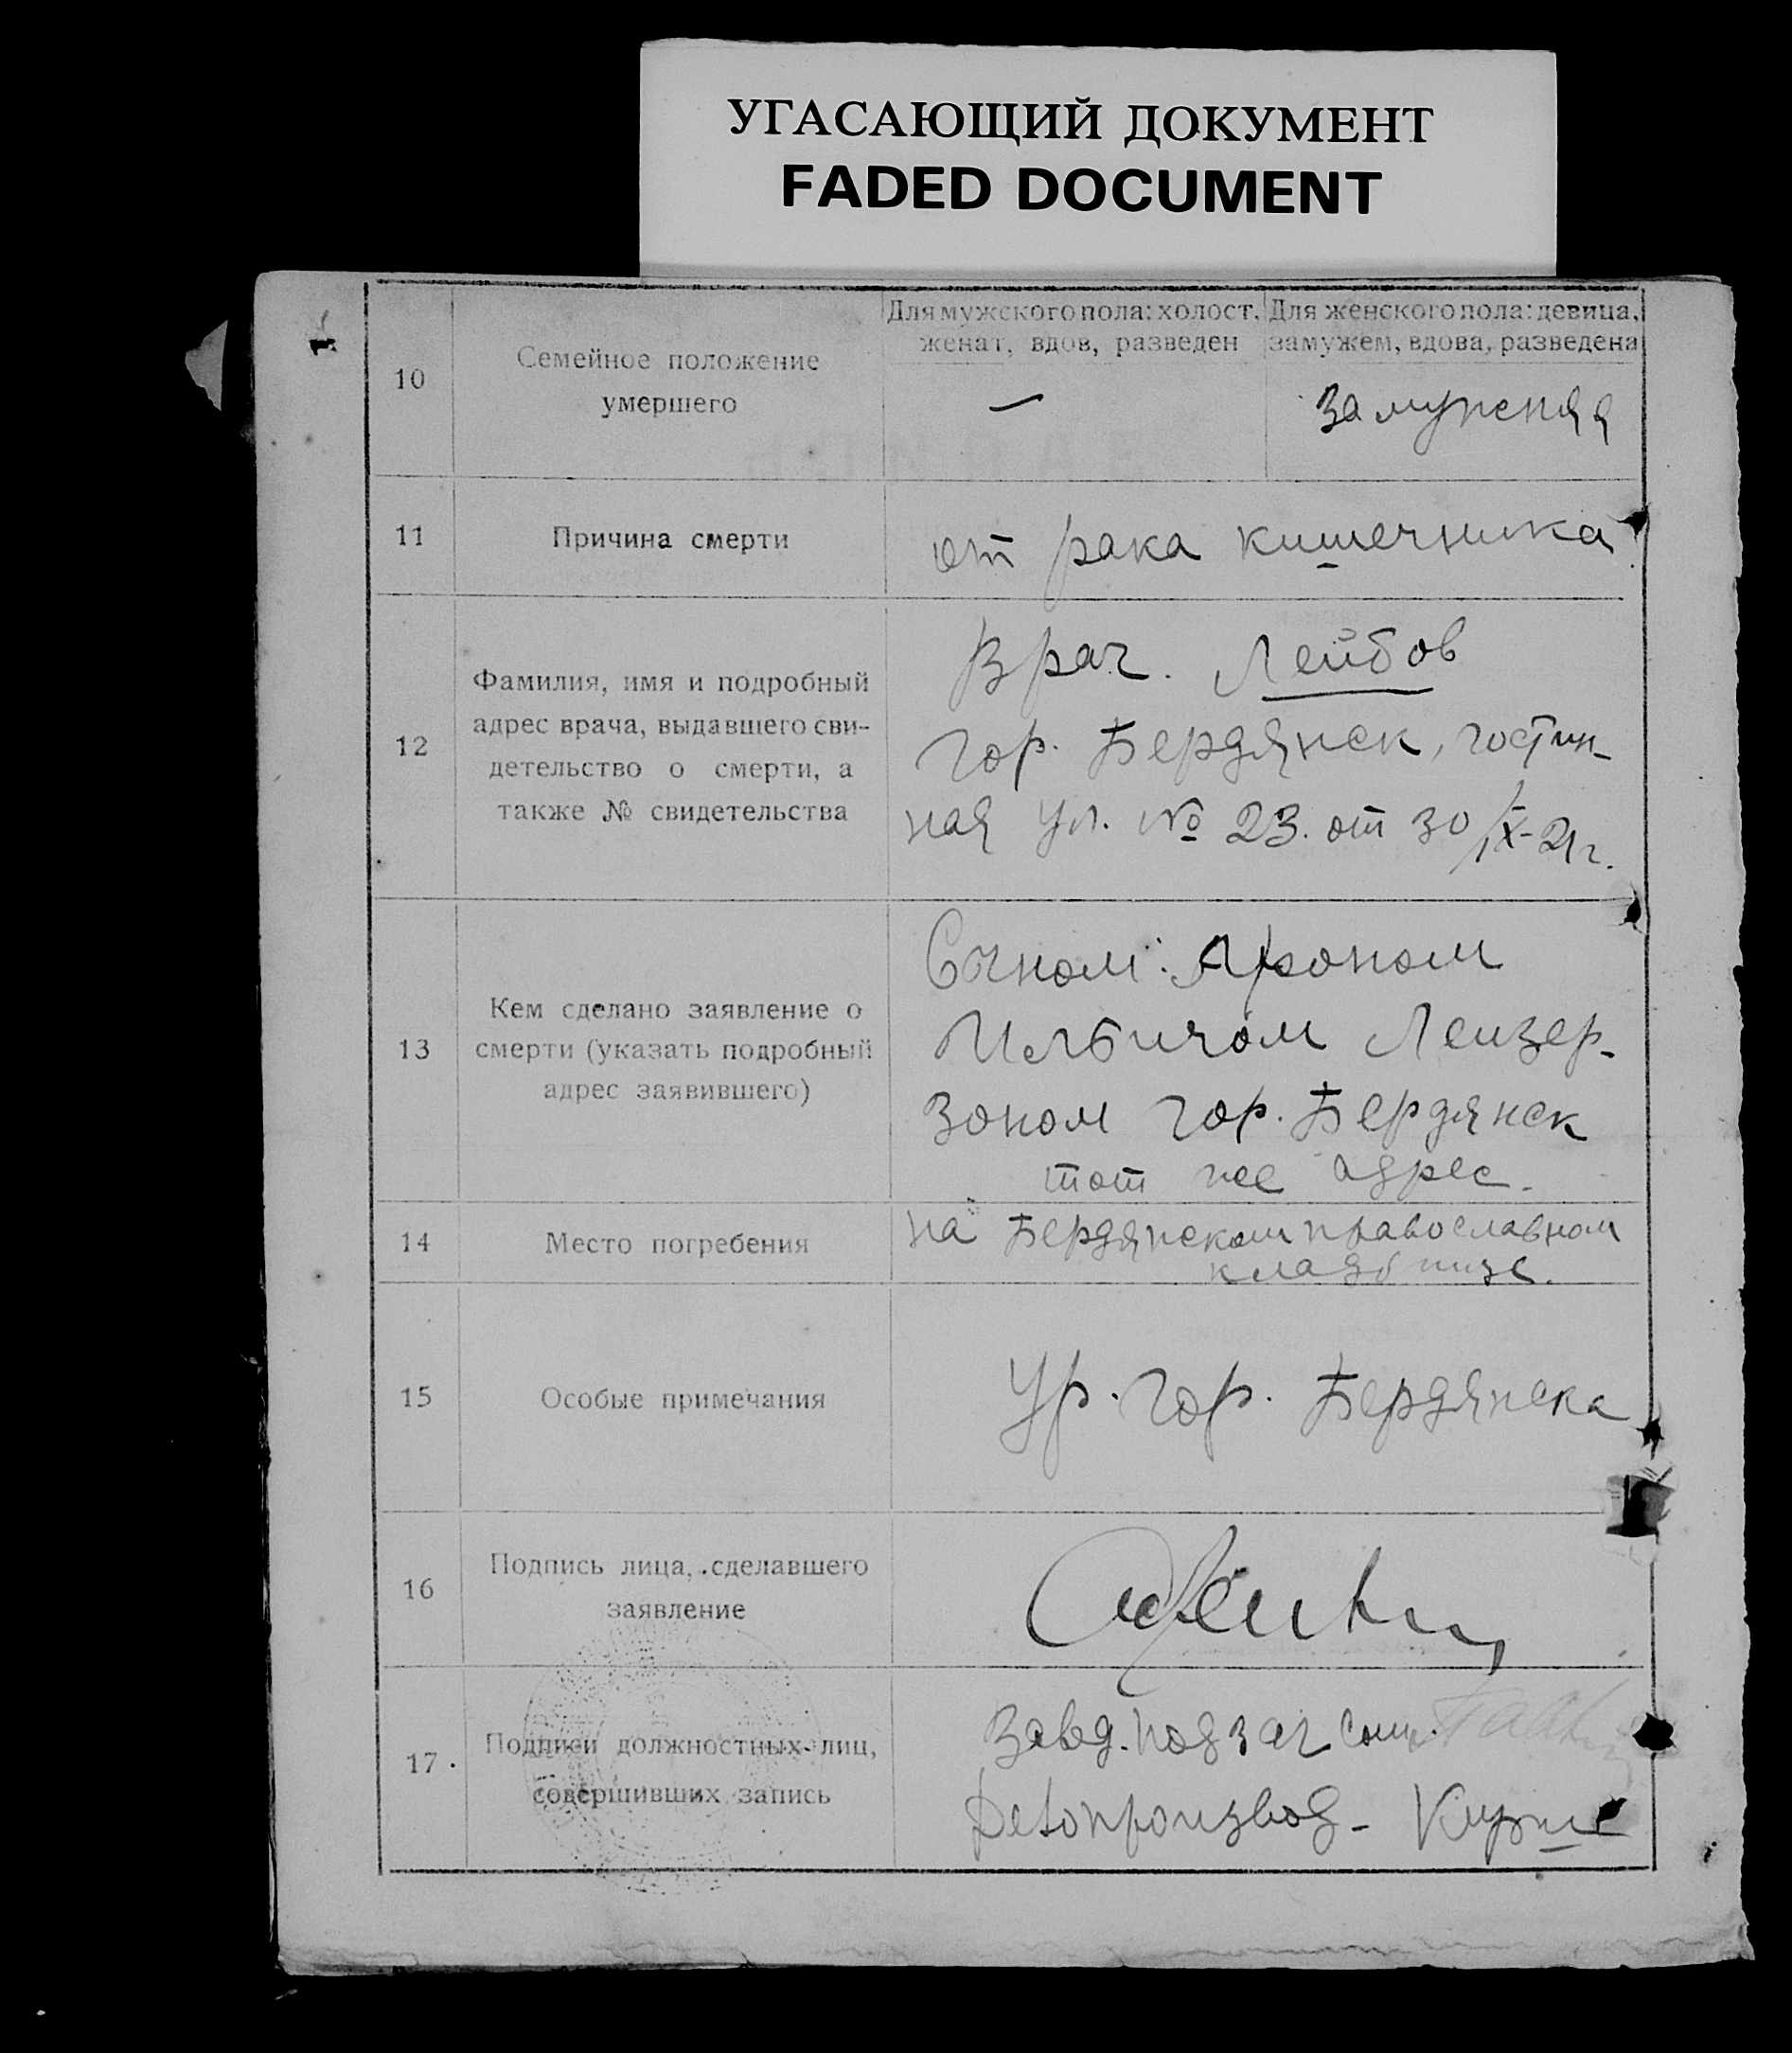 УГАСАЮЩИЙ ДОКУМЕНТ
FADED DOCUMENT
10
Семейное положение
умершего
Для мужского пола: холост,
женат, вдов, разведен
—
Для женского пола: девица,
замужем, вдова, разведена
замужняя
11
Причина смерти
от рака кишечника
12
Фамилия, имя и подробный
адрес врача, выдавшего сви-
детельство о смерти, а
также № свидетельства
Врач. Лейбов
гор. Бердянск, гостин-
ная ул. № 23. от 30/IX-21г.
13
Кем сделано заявление о
смерти (указать подробный
адрес заявившего)
Сыном: Ароном
Ильичом Леизер-
зоном гор. Бердянск
тот же адрес.
14
Место погребения
на Бердянском православном
кладбище.
15
Особые примечания
Ур. гор. Бердянска
16
Подпись лица, сделавшего
заявление
17
Подписи должностных лиц,
совершивших запись
Завед. подзаг
Делопроизвод-